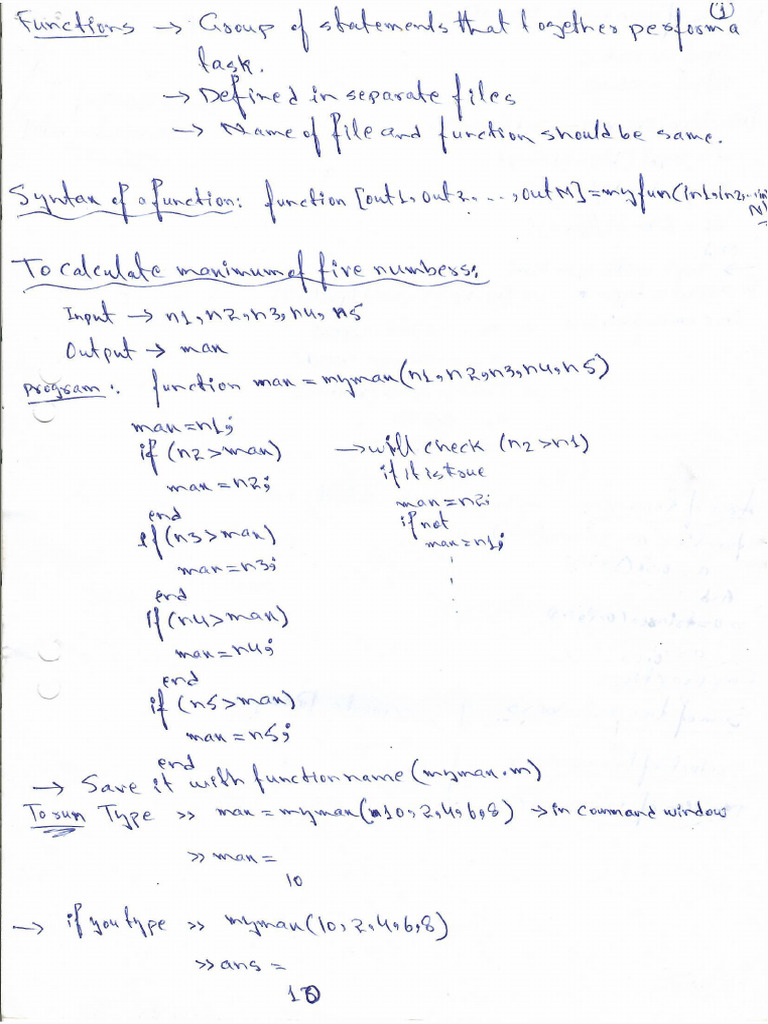 (1)
Functions → Group of statements that together perform a
task.
→ Defined in separate files
→ Name of file and function should be same.
Syntax of a function: function [out1, out2, ..., outM] = myfun(in1, in2, ... in
N)
To calculate maximum of five numbers:
Input → n1, n2, n3, n4, n5
Output → max
program: function max = mymax(n1, n2, n3, n4, n5)
max = n1;
if (n2 > max) → will check (n2 > n1)
if it is true
max = n2; max = n2;
end if not
if (n3 > max) max = n1;
max = n3;
end
if (n4 > max)
max = n4;
end
if (n5 > max)
max = n5;
end
→ Save it with function name (mymax.m)
To run Type >> max = mymax(10, 2, 4, 6, 8) → in command window
>> max =
10
→ if you type >> mymax(10, 2, 4, 6, 8)
>> ans =
10